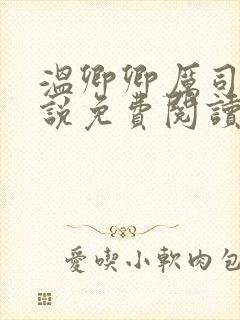 溫卿卿厲司
說免費閱讀
愛喫小軟肉包